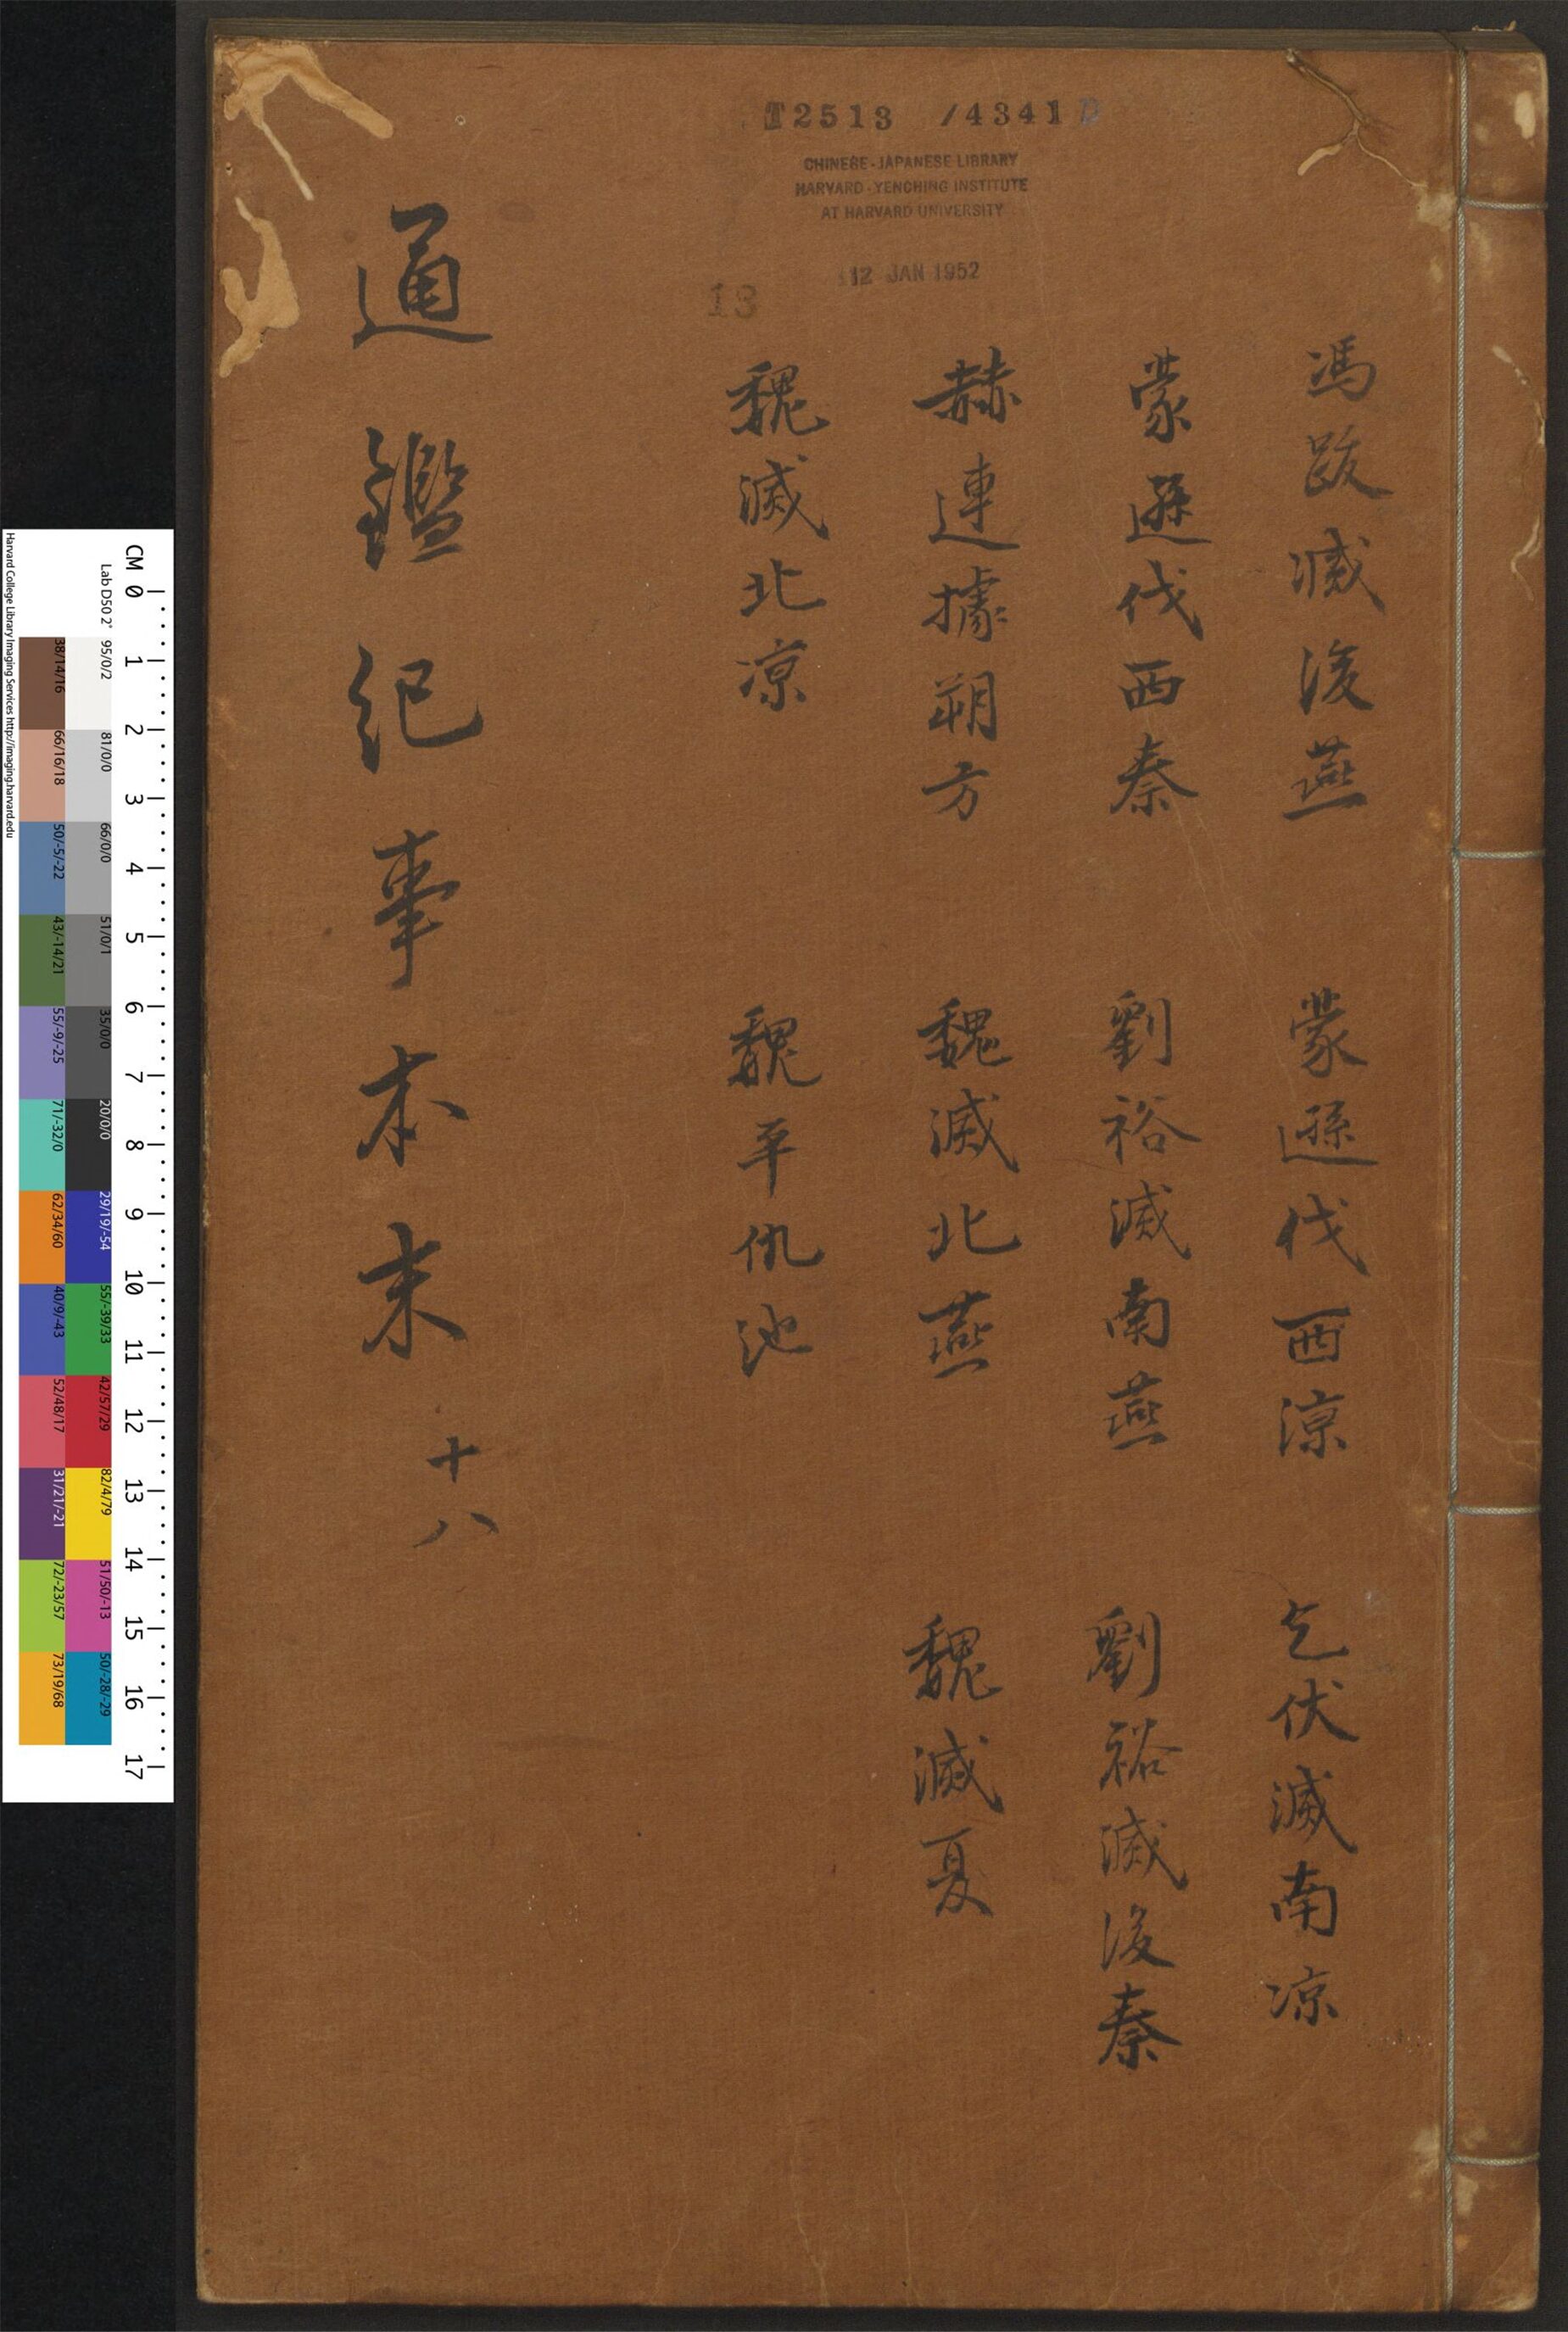 T2513 /4341D
CHINESE-JAPANESE LIBRARY
HARVARD-YENCHING INSTITUTE
AT HARVARD UNIVERSITY
12 JAN 1952
13
馮跋滅後燕 蒙遜伐西涼 乞伏滅南凉
蒙遜伐西秦 劉裕滅南燕 劉裕滅後秦
赫連據朔方 魏滅北燕 魏滅夏
魏滅北凉 魏平仇池
通鑑紀事本末 十八
CM 0 1 2 3 4 5 6 7 8 9 10 11 12 13 14 15 16 17
Lab D50 2° 95/0/2 81/0/0 66/0/0 51/0/1 35/0/0 20/0/0 29/19/-54 55/-39/33 42/57/29 82/4/79 51/50/-13 50/-28/-29
38/14/16 66/16/18 50/-5/-22 43/-14/21 55/-9/-25 71/-32/0 62/34/60 40/9/-43 52/48/17 31/21/-21 72/-23/57 73/19/68
Harvard College Library Imaging Services http://imaging.harvard.edu